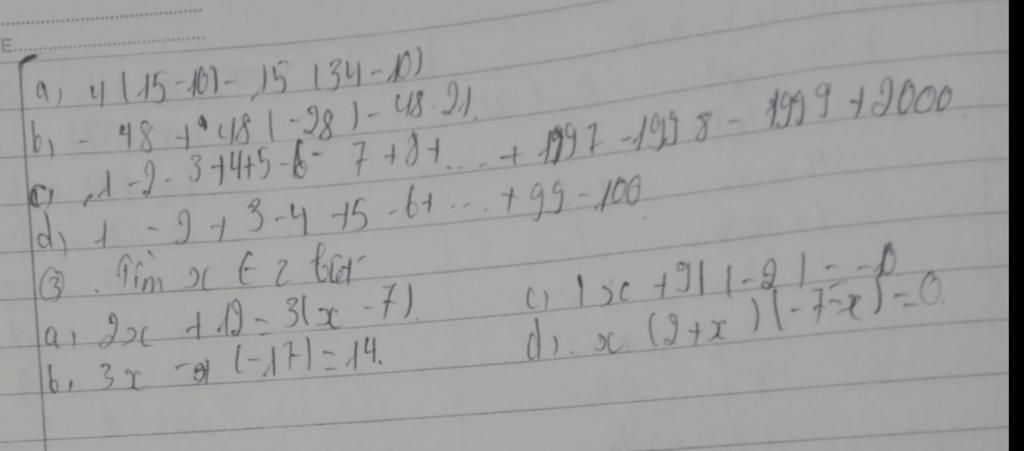 E
a, 4 (15-10) - 15 (34-10)
b, - 48 + 48 (-28) - 48.21.
c, 1 - 2 - 3 + 4 + 5 - 6 - 7 + 8 + ... + 1997 - 1998 - 1999 + 2000
d, 1 - 2 + 3 - 4 + 5 - 6 + ... + 99 - 100
③. Tìm x ∈ Z biết
a, 2x + 12 = 3(x - 7)
c, (x + 9) (-2) =
b, 3x - (-17) = 14.
d, x (2+x) (-7-x) = 0.